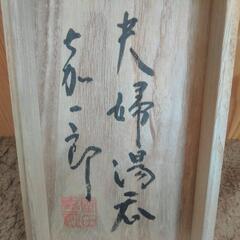 夫婦湯呑
嘉一郎